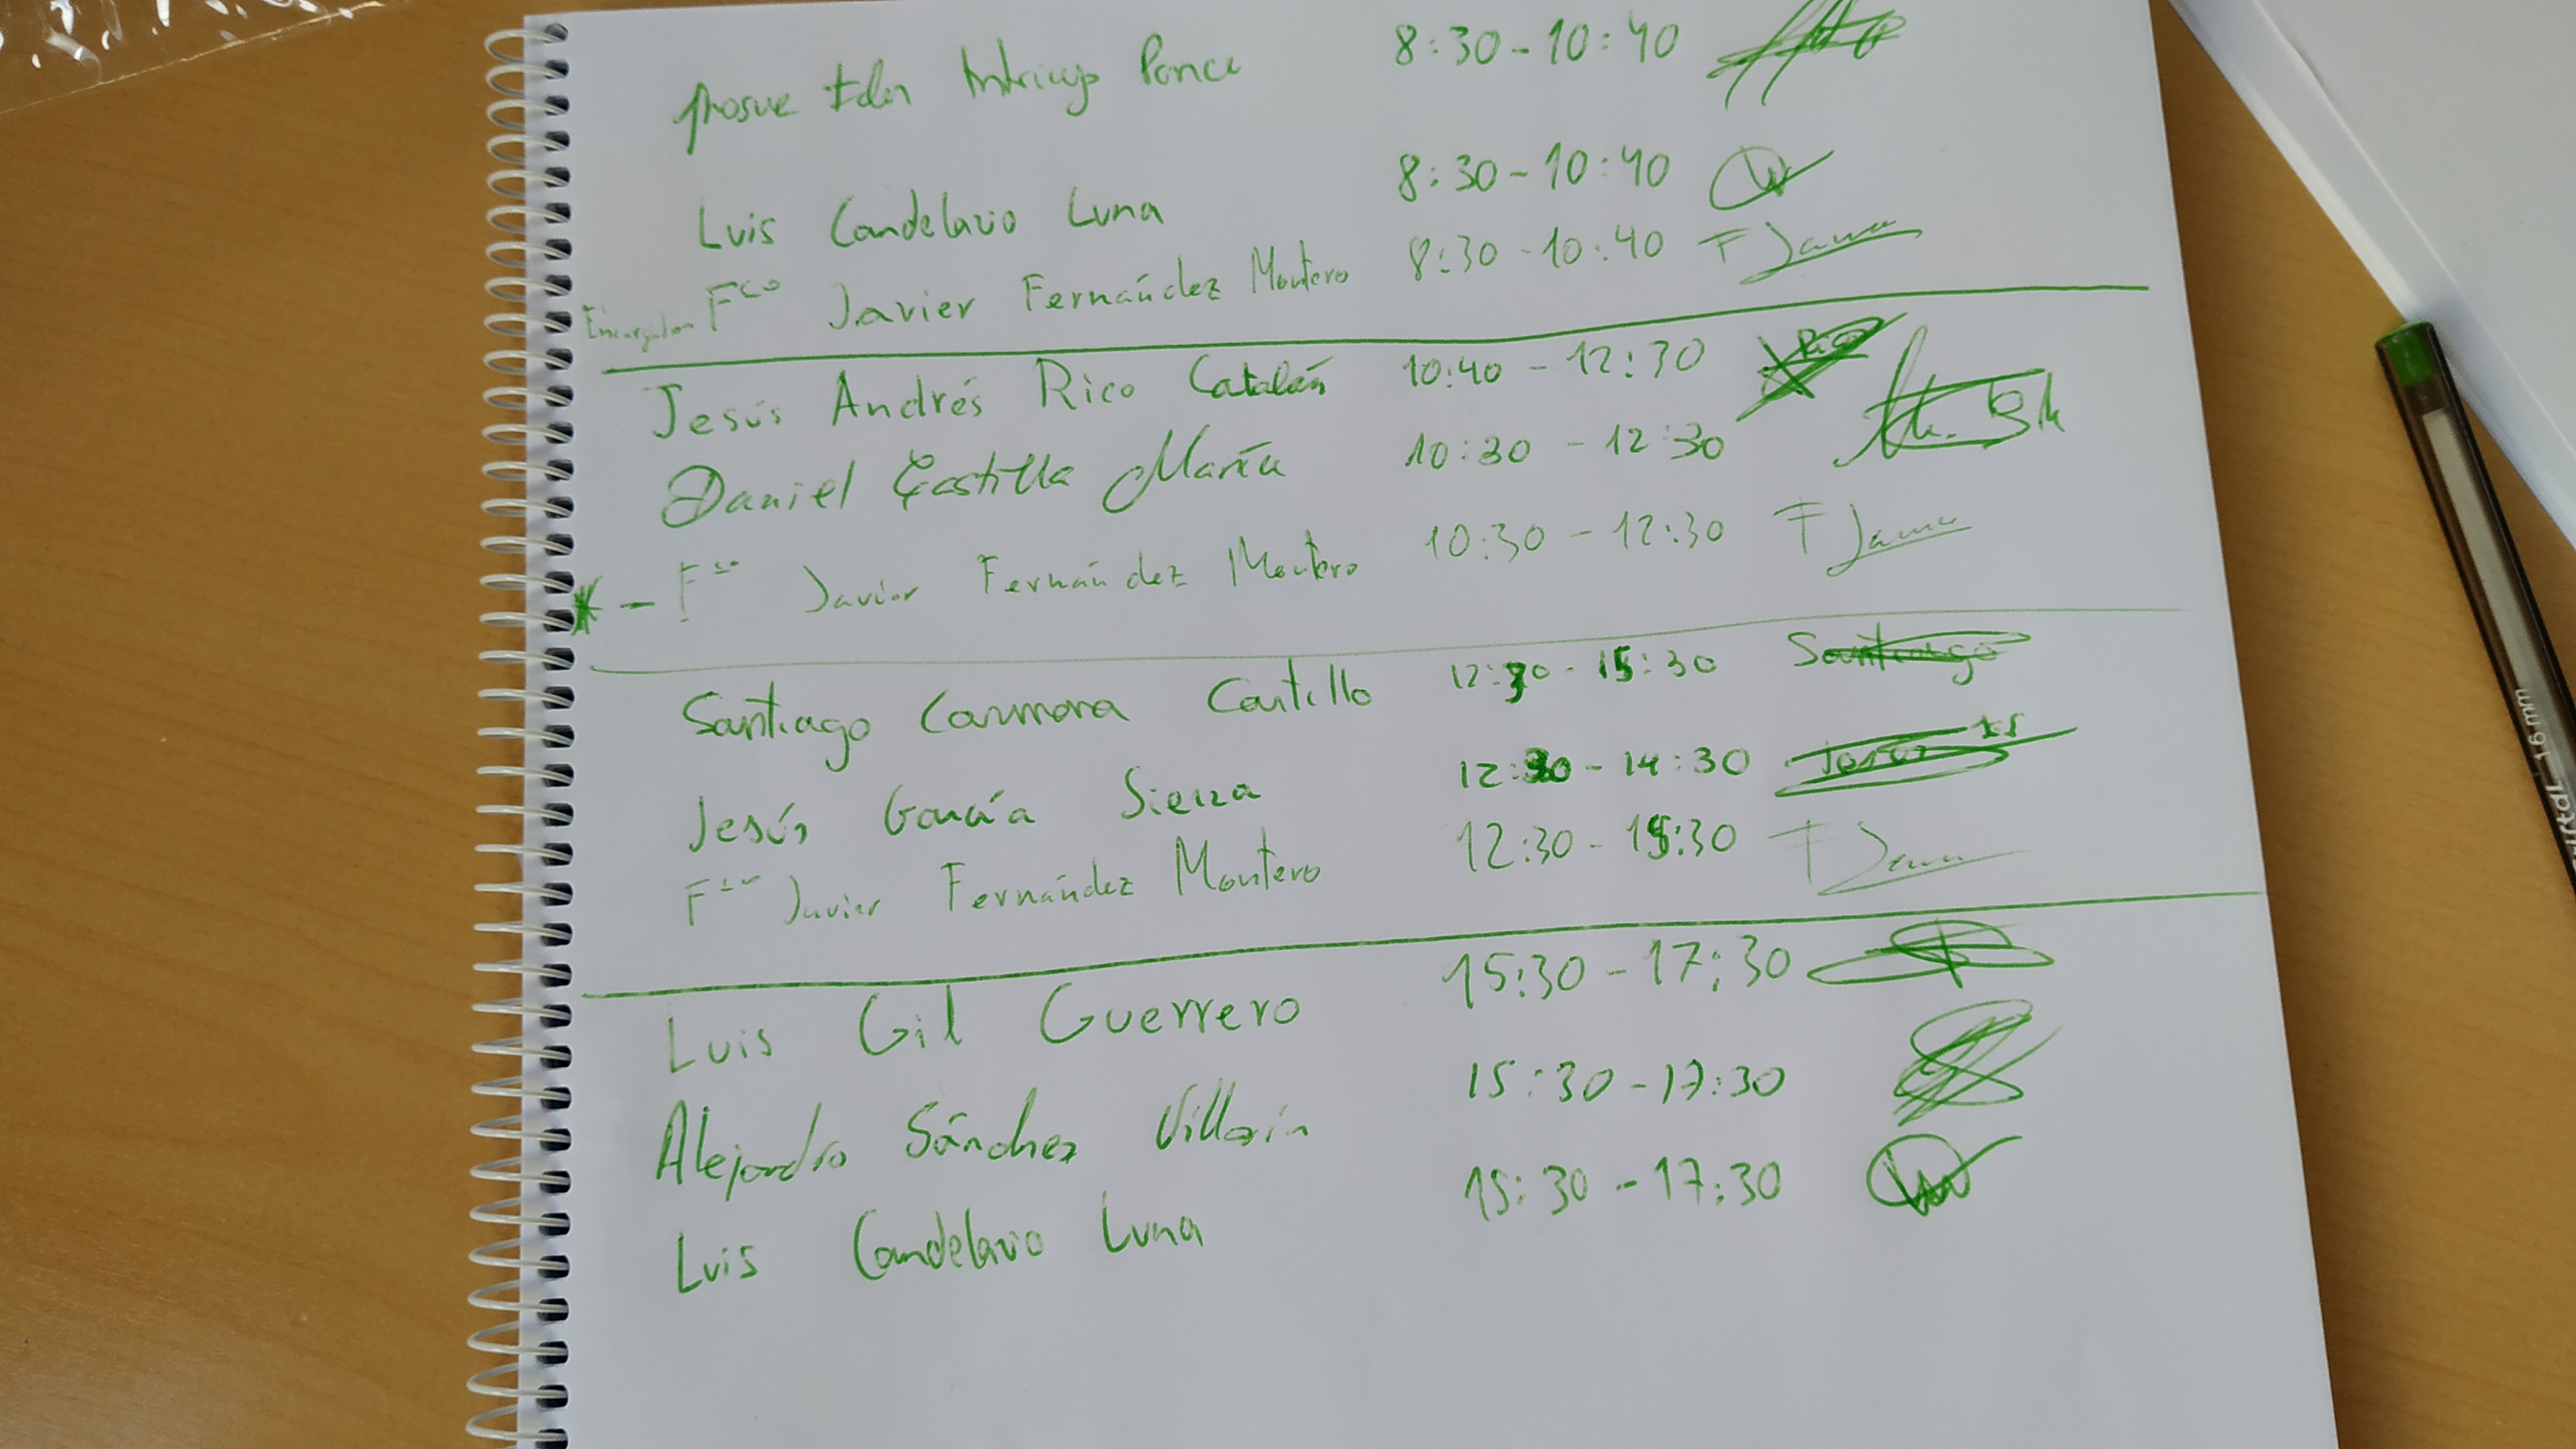 Ponce 8:30-10:40
Luis Candelario Luna 8:30-10:40
Fco Javier Fernández Montero 8:30-10:40 F Javier
Jesús Andrés Rico Catalán 10:40-12:30
Daniel Castilla María 10:30-12:30
* - Fco Javier Fernández Montero 10:30-12:30 F Javier
Santiago Carmona Castillo 12:30-15:30 Santiago
Jesús García Sierra 12:30-14:30 Jesús
Fco Javier Fernández Montero 12:30-15:30 F Javier
Luis Gil Guerrero 15:30-17:30
Alejandro Sánchez Villarín 15:30-17:30
Luis Candelario Luna 15:30-17:30
1.6 mm